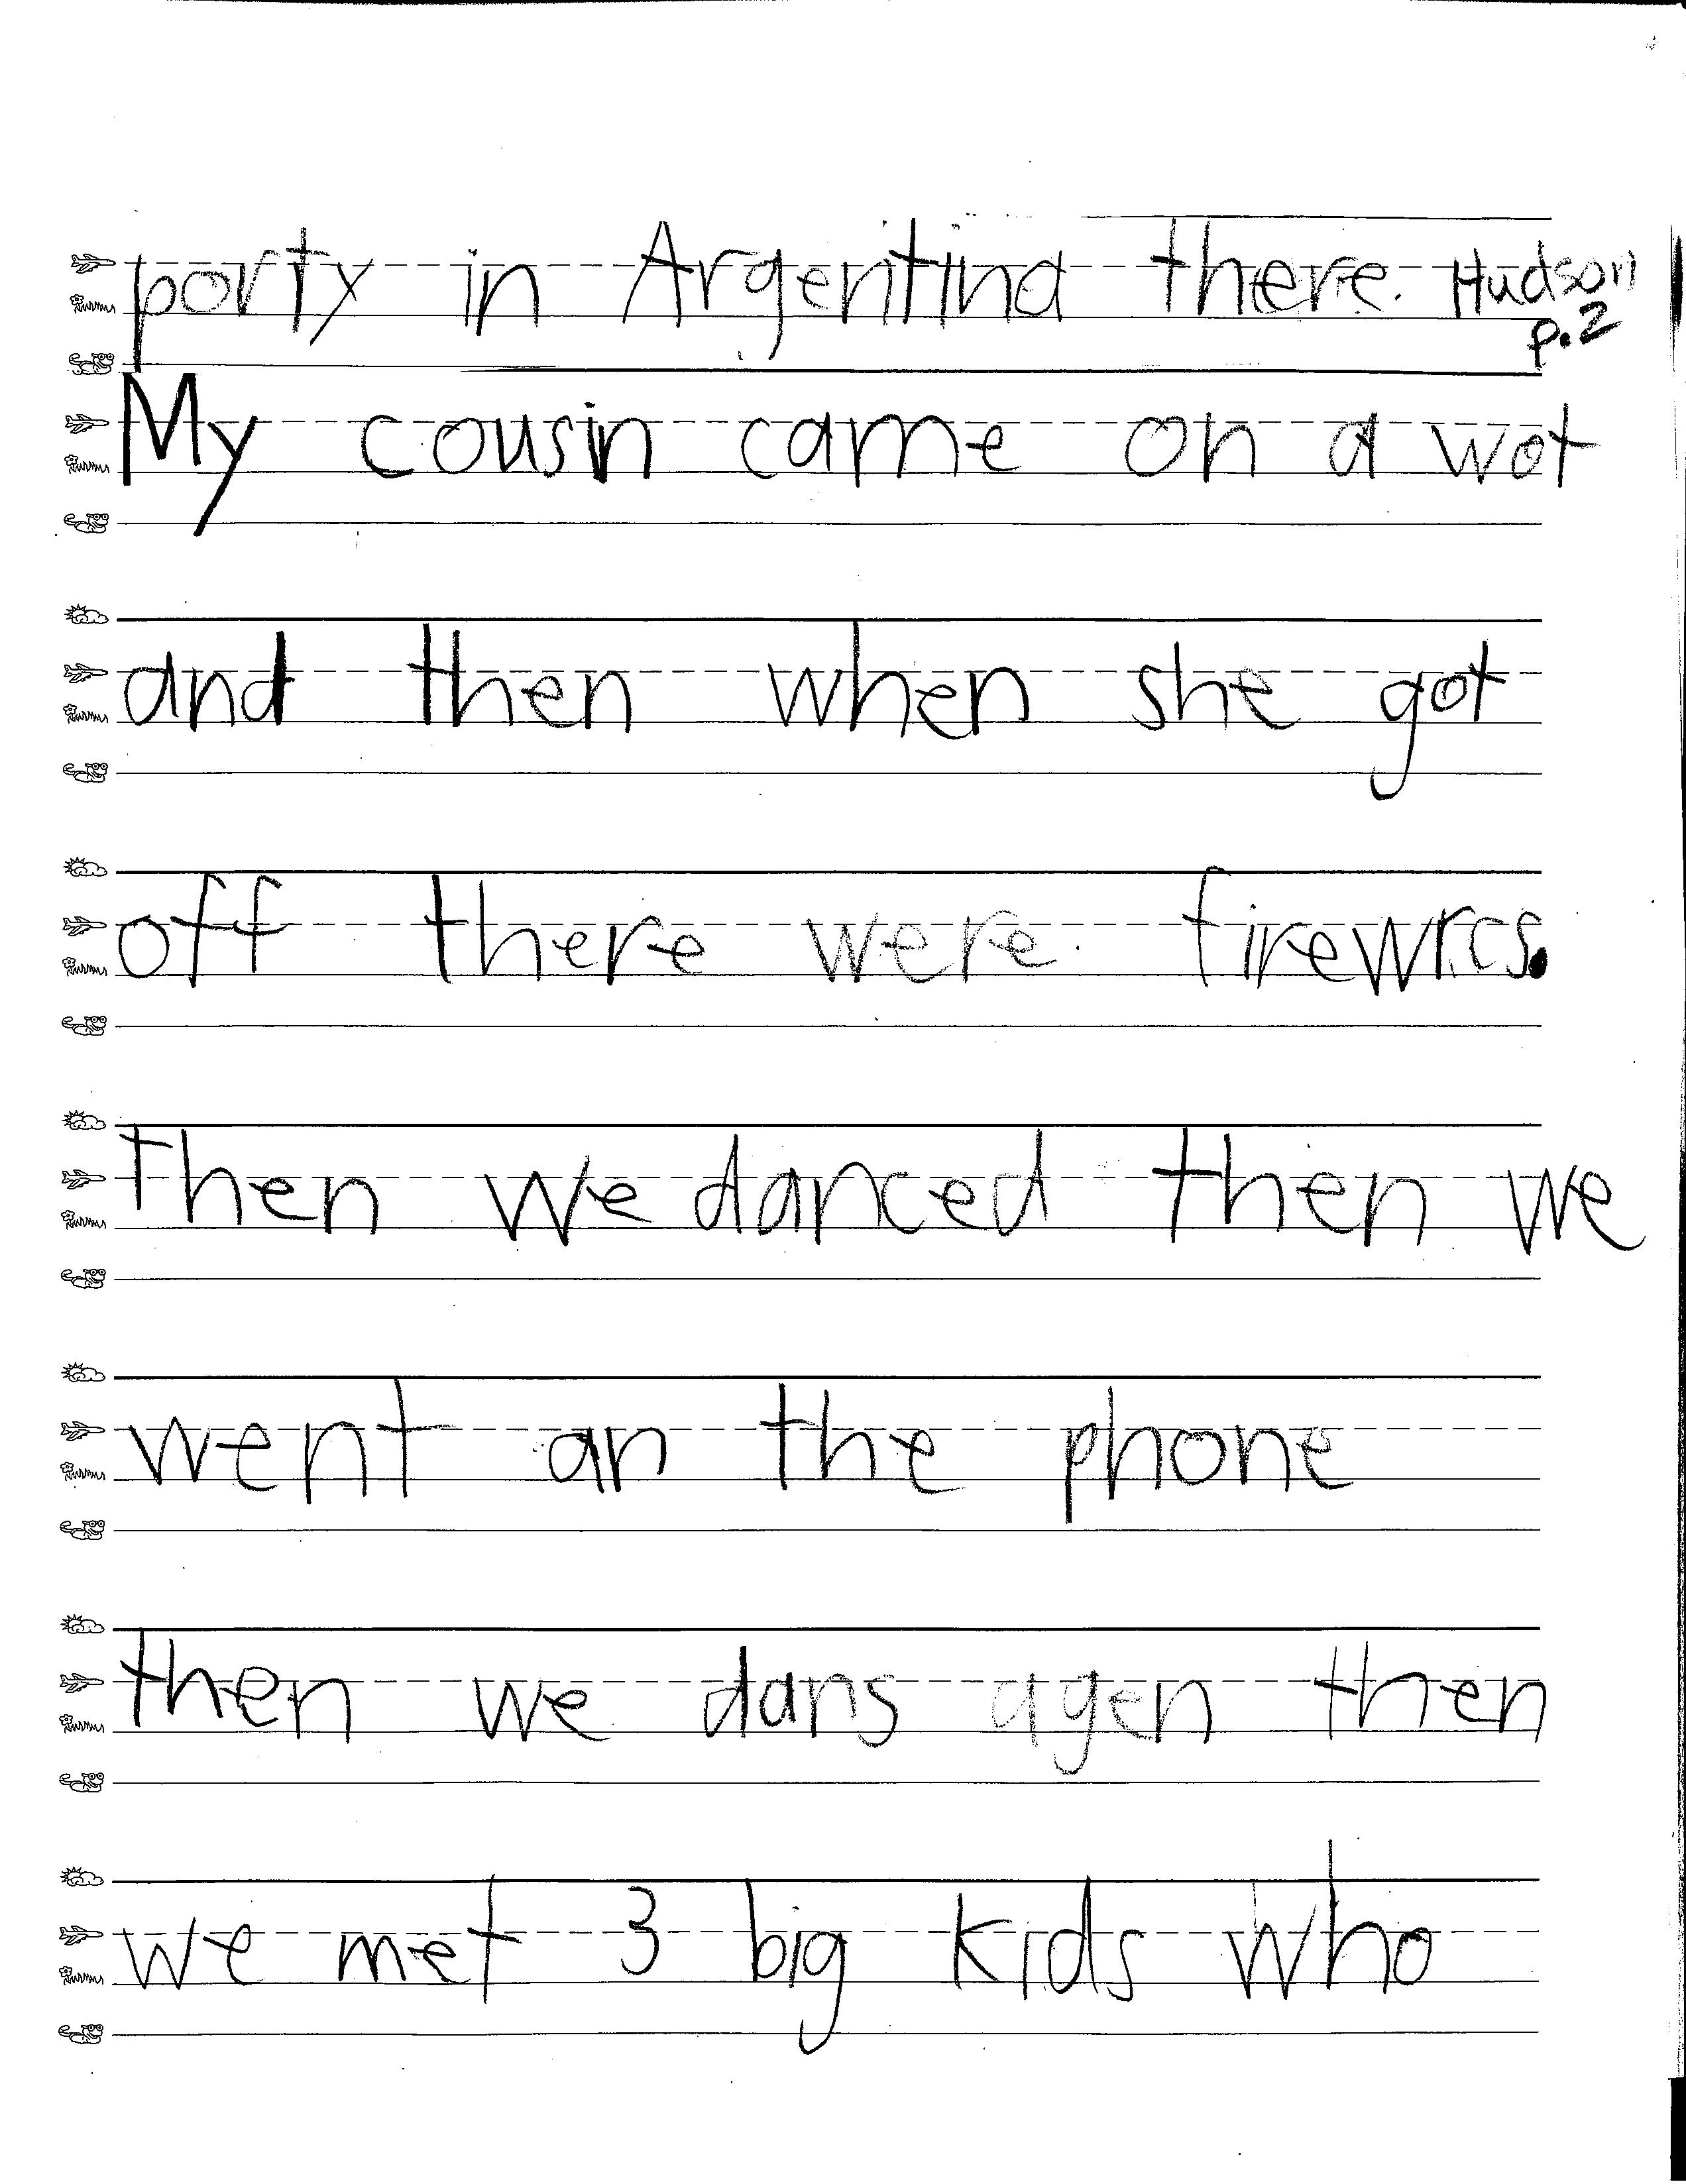 porty in Argentina there. Hudson
p.2
My cousin came on a wot
and then when she got
off there were firewrcs.
Then we danced then we
went an the phone
then we dans agen then
we met 3 big kids who